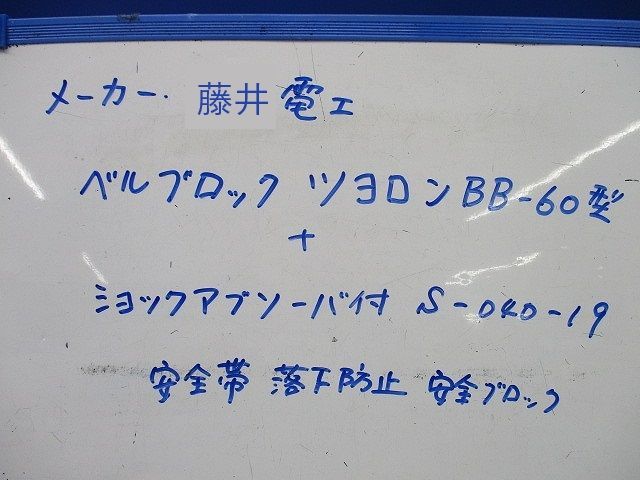 メーカー. 藤井電工
ベルブロック ツヨロンBB-60型
+
ショックアブソーバ付 S-040-19
安全帯 落下防止 安全ブロック